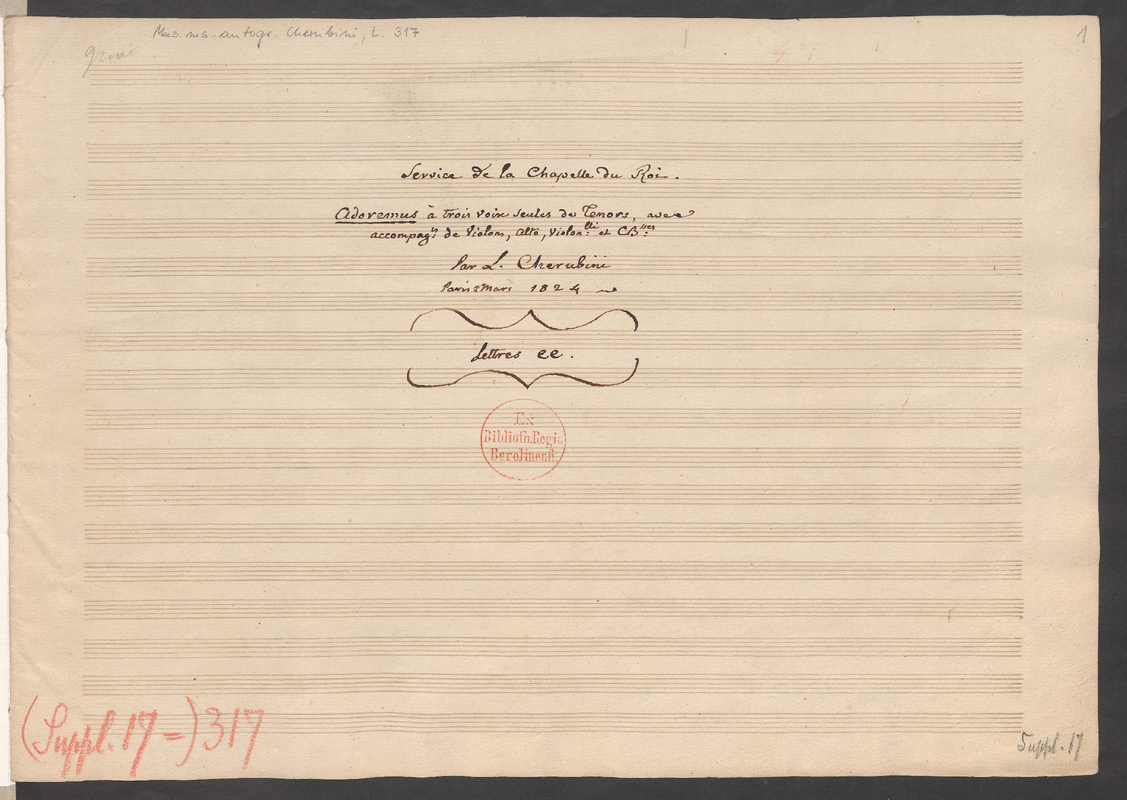 Mus. ms. autogr. Cherubini, L. 317
1
Service de la Chapelle du Roi.
Adoremus à trois voix seules de Tenors, avec
accompag.ts de Violons, Alto, Violon.lli et CB.sses
Par L. Cherubini
Paris Mars 1824
Lettres ee.
Ex
Biblioth. Regia
Berolinensi.
(Suppl. 17 =) 317
Suppl. 17